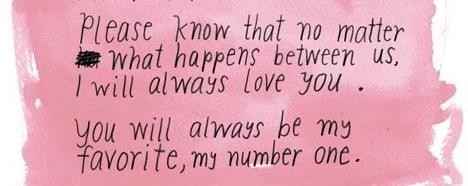 Please know that no matter
what happens between us,
I will always love you.
You will always be my
favorite, my number one.